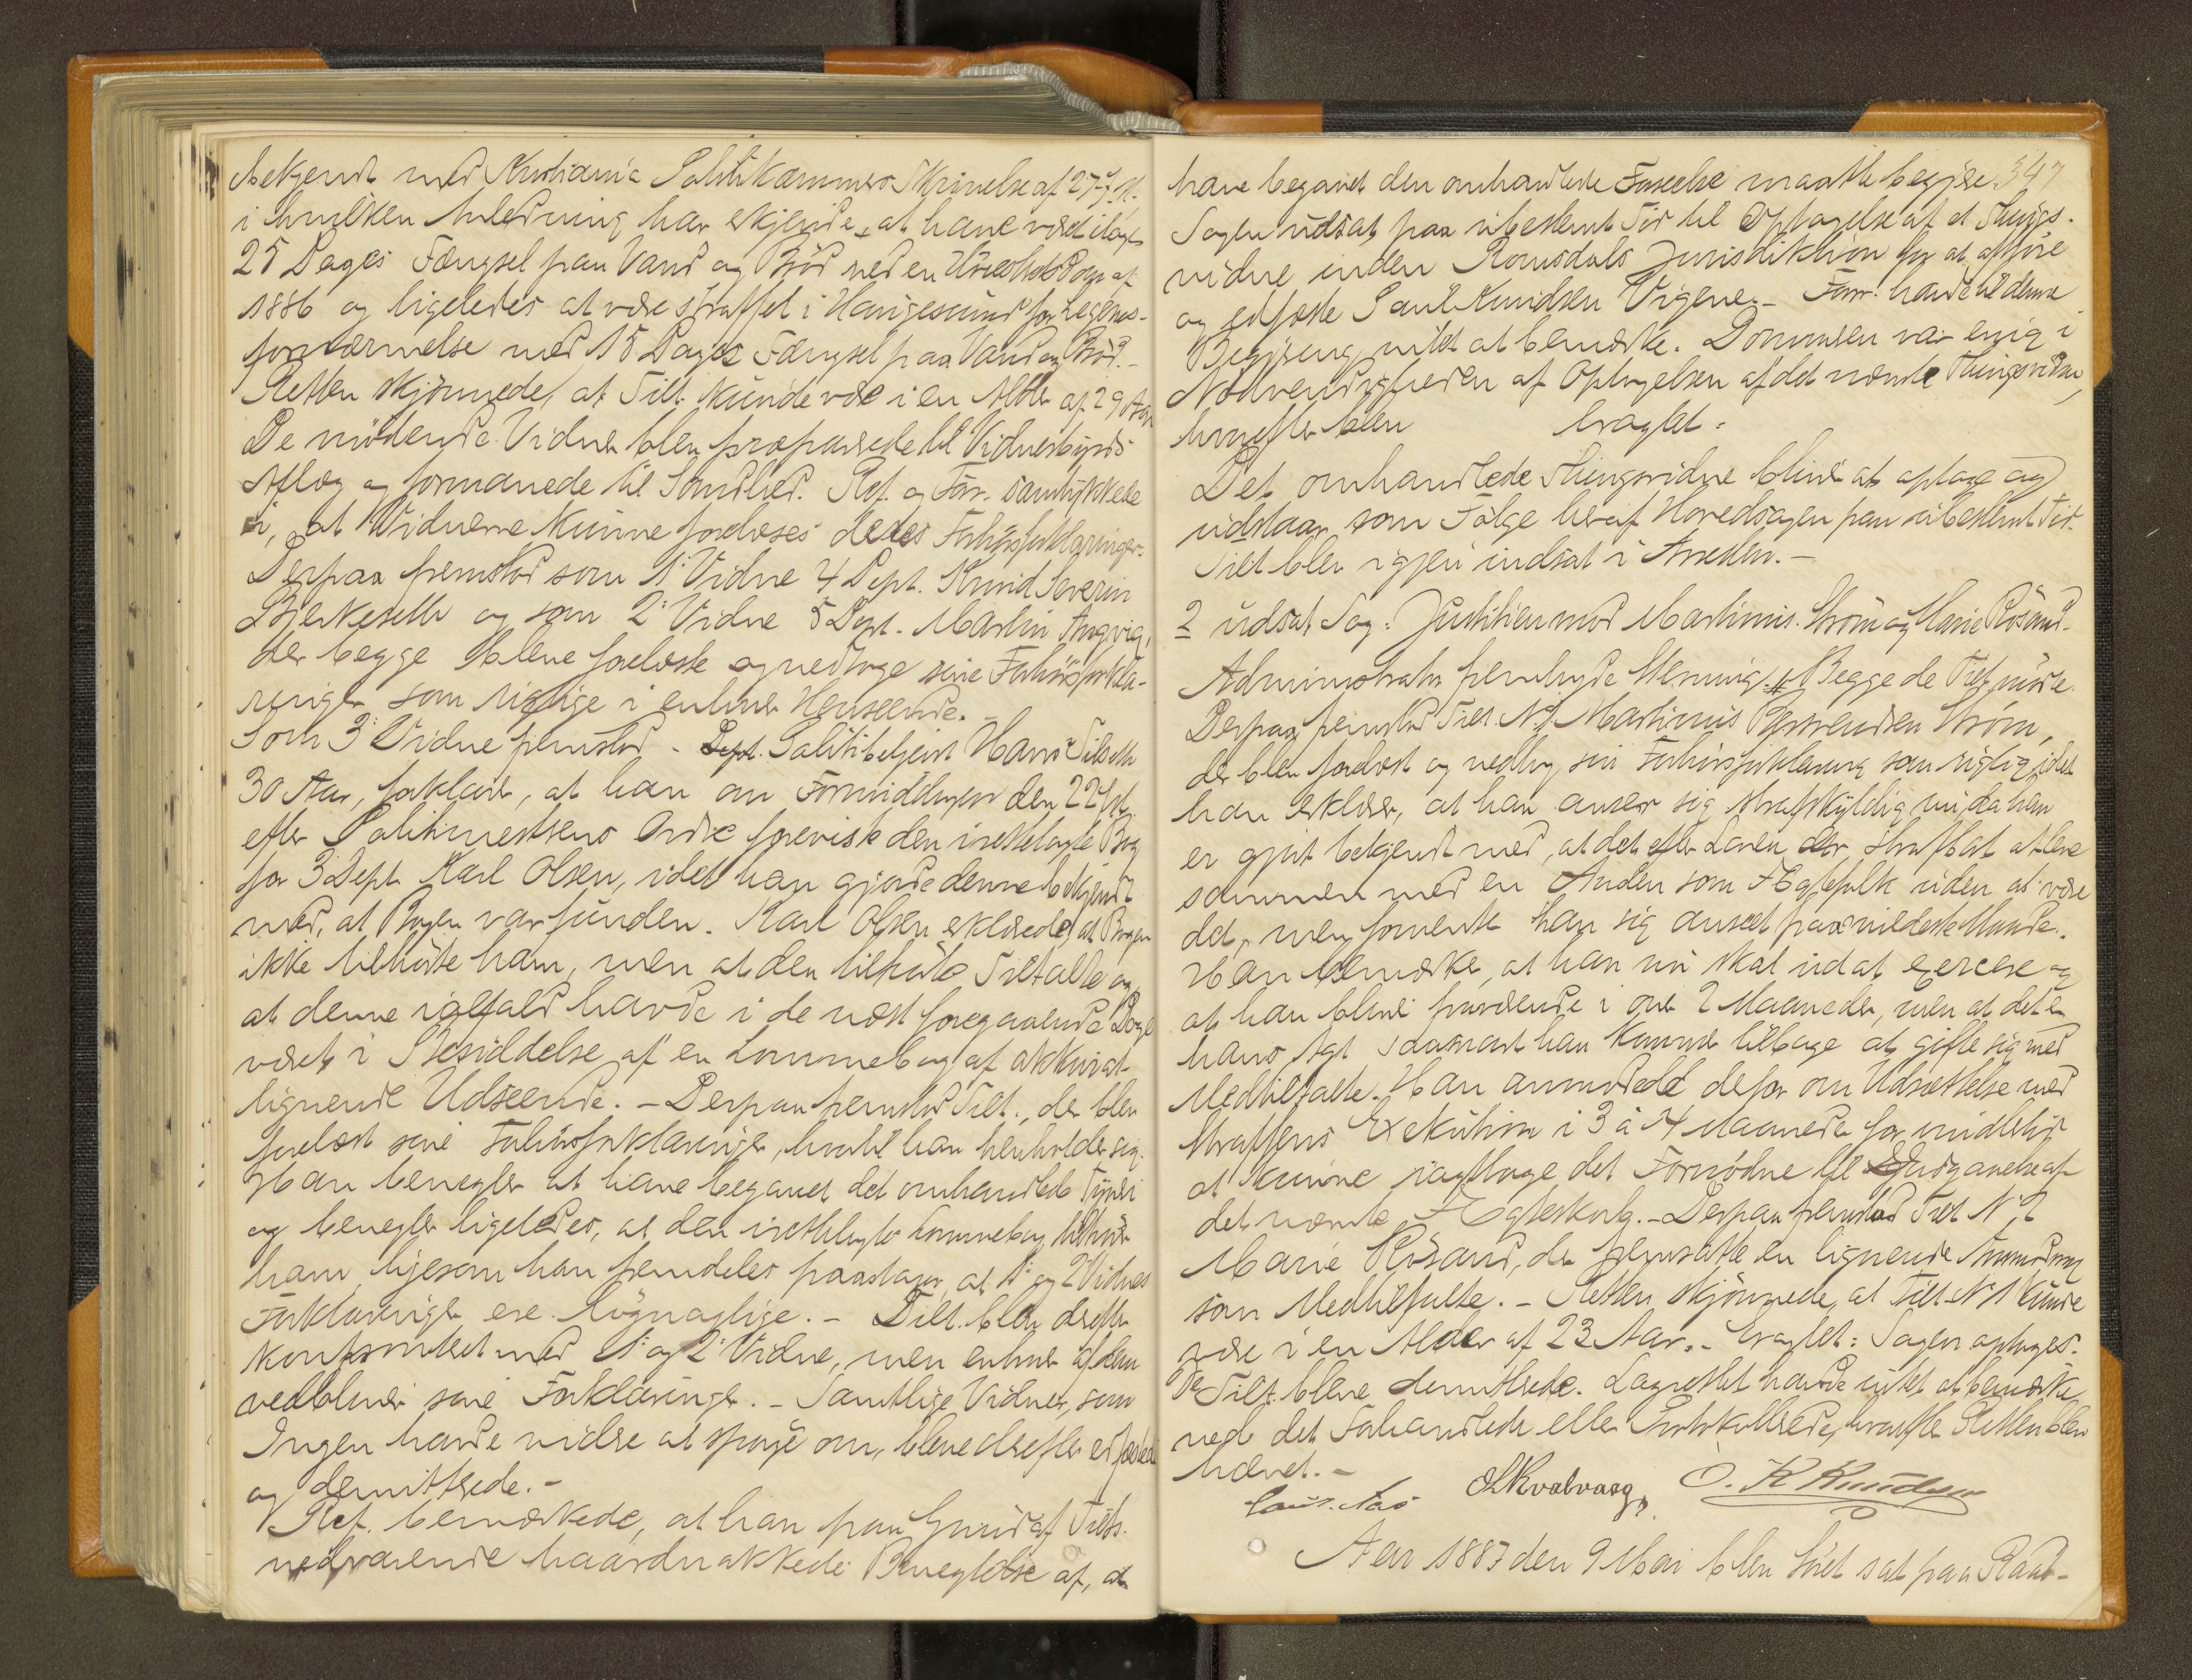 bekjendt med Kristiania Politikammers Skrivelse af 27-4 d.A.
i hvilken Anledning han erkjender, at have været ilagt
25 Dages Fængsel paa Vand og Brød ved en Dom af
1886 og ligeledes at være straffet i Haugesund for Legems-
fornærmelse med 15 Dages Fængsel paa Vand og Brød. -
Retten skjønnede, at Tilt. kunde være i en Alder af 29 Aar
De mødende Vidner blev præparerede til Vidnesbyrds
Aflæg og formanede til Sandhed. Ref. og Forsv. samtykkede
i, at Vidnerne kunne forelæses deres Forhørsforklaringer.
Derpaa fremstod som 1. Vidne 4 Dept. Knud Severin
Bjerkeseth og som 2. Vidne 5 Dept. Martin Angvig,
der begge bleve forelæste og vedtoge sine Forhørsforkla-
ringer som rigtige i enhver Henseende. -
Som 3. Vidne fremstod - Politibetjent Hans
30 Aar, forklarer, at han om Formiddagen den 22
efter Politimesterens Ordre foreviste den irettelagte Bog
for 3 Dept. Karl Olsen, idet han gjorde denne bekjendt
med, at Bogen var funden. Karl Olsen erklærede, at Bogen
ikke tilhørte ham, men at den tilhørte Tiltalte og
at denne ialfald havde i de næst foregaaende Dage
været i Besiddelse af en Lommebog af akkurat
lignende Udseende. - Derpaa fremstod Tilt., der blev
forelæst sine Forhørsforklaringer, hvortil han henholder sig.
Han benegter at have begaaet det omhandlede Tyveri
og benegter ligeledes, at den irettelagte Lommebog tilhører
ham, ligesom han fremdeles paastaar, at 1. og 2 Vidnes
Forklaringer ere løgnagtige. - Tilt. blev derefter
konfronteret med 1. og 2. Vidne, men enhver af dem
vedblev sine Forklaringer. - Samtlige Vidner, som
Ingen havde videre at spørge om, bleve derefter edfæstede
og demitterede. -
Ref. bemærkede, at han paa Grund af Tilts.
vedvarende haardnakkede Benegtelse af, at
347
have begaaet den omhandlede Forseelse maatte begjære
Sagen udsat paa ubestemt Tid til Optagelse af et Things-
vidne inden Romsdals Jurisdiktion for at afhøre
og edfæste Paul Knudsen Vigene. - Forsv. havde til denne
Begjæring intet at bemærke. Domsmen var enig i
Nødvendigheden af Optagelsen af det nævnte Thingsvidne,
hvorefter blev eragtet:
Det omhandlede Thingsvidne bliver at optage og
udstaar som Følge heraf Hovedsagen paa ubestemt Tid.
Tilt. blev igjen indsat i Arresten. -
2 udsat Sag: Justitien mod Martinus Strøm og Marie Røsand.
Administrator fremlagde Stevning. Begge de Tilt. mødte.
Derpaa fremstod Tilt. No 1 Martinus Strøm,
der blev forelæst og vedtog sin Forhørsforklaring som rigtig, idet
han erklærer, at han anser sig strafskyldig, nu da han
er gjort bekjendt med, at det efter Loven er strafbart at leve
sammen med en Anden som Ægtefolk uden at være
det, men formente han sig anseet paa mildeste Maade.
Han bemærker, at han nu skal ud at exercere og
at han bliver fraværende i over 2 Maaneder, men at det er
hans Agt saasnart han kommer tilbage at gifte sig med
Medtiltalte. Han anmodede derfor om Udsættelse med
Straffens Exekution i 3 à 4 Maaneder for imidlertid
at kunne iagttage det Fornødne til Indgaaelse af
det nævnte Ægteskab. - Derpaa fremstod Tilt. No 2
Marie Røsand, der fremsatte en lignende Anmodning
som Medtiltalte. - Retten skjønnede, at Tilt. No 1 kunde
være i en Alder af 23 Aar. - Eragtet: Sagen optages.
De Tilt. bleve demitterede. Lagrettet havde intet at bemærke
ved det Forhandlede eller Protokollerede, hvorefter Retten blev
hævet. -
OKvalvaag O. K Knudsen
Aar 1887 den 9 Mai blev Ret sat paa Raad-